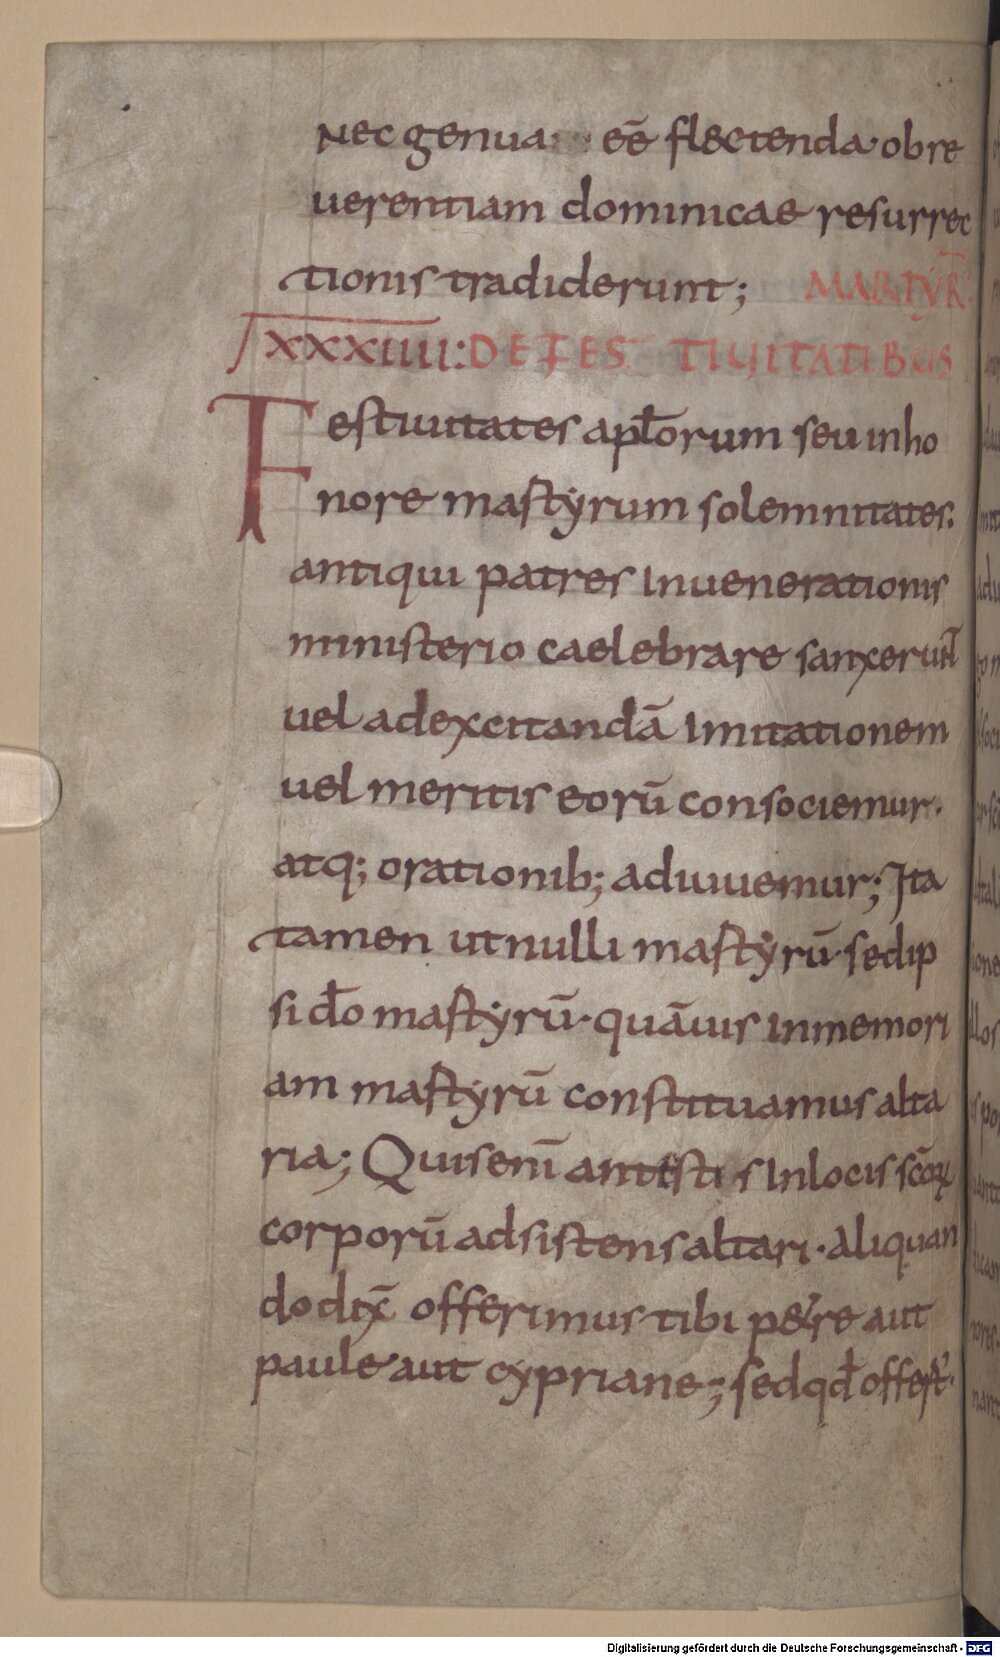 nec genua eē flectenda· ob re
uerentiam dominicae resurrec
tionis tradiderunt; MARTYR̄·
XXXIIII: DE FESTIUITATIBUS
Festiuitates apl̄orum seu in ho
nore martyrum solemnitates.
antiqui patres in uenerationis
ministerio caelebrare sanxerunt̄
uel ad excitandā Imitationem
uel meritis eorū consociemur·
atq; orationib; adiuuemur; Ita
tamen ut nulli martyrū· sed ip
si dō martyrū· quāuis in memori
am martyrū constituamus alta
ria; Quis enī antestis In locis scōꝝ
corporū adsistens altari· aliquan
do dix̄ offerimus tibi petre aut
paule· aut cypriane; sed qd̄ offert'·
Digitalisierung gefördert durch die Deutsche Forschungsgemeinschaft - DFG